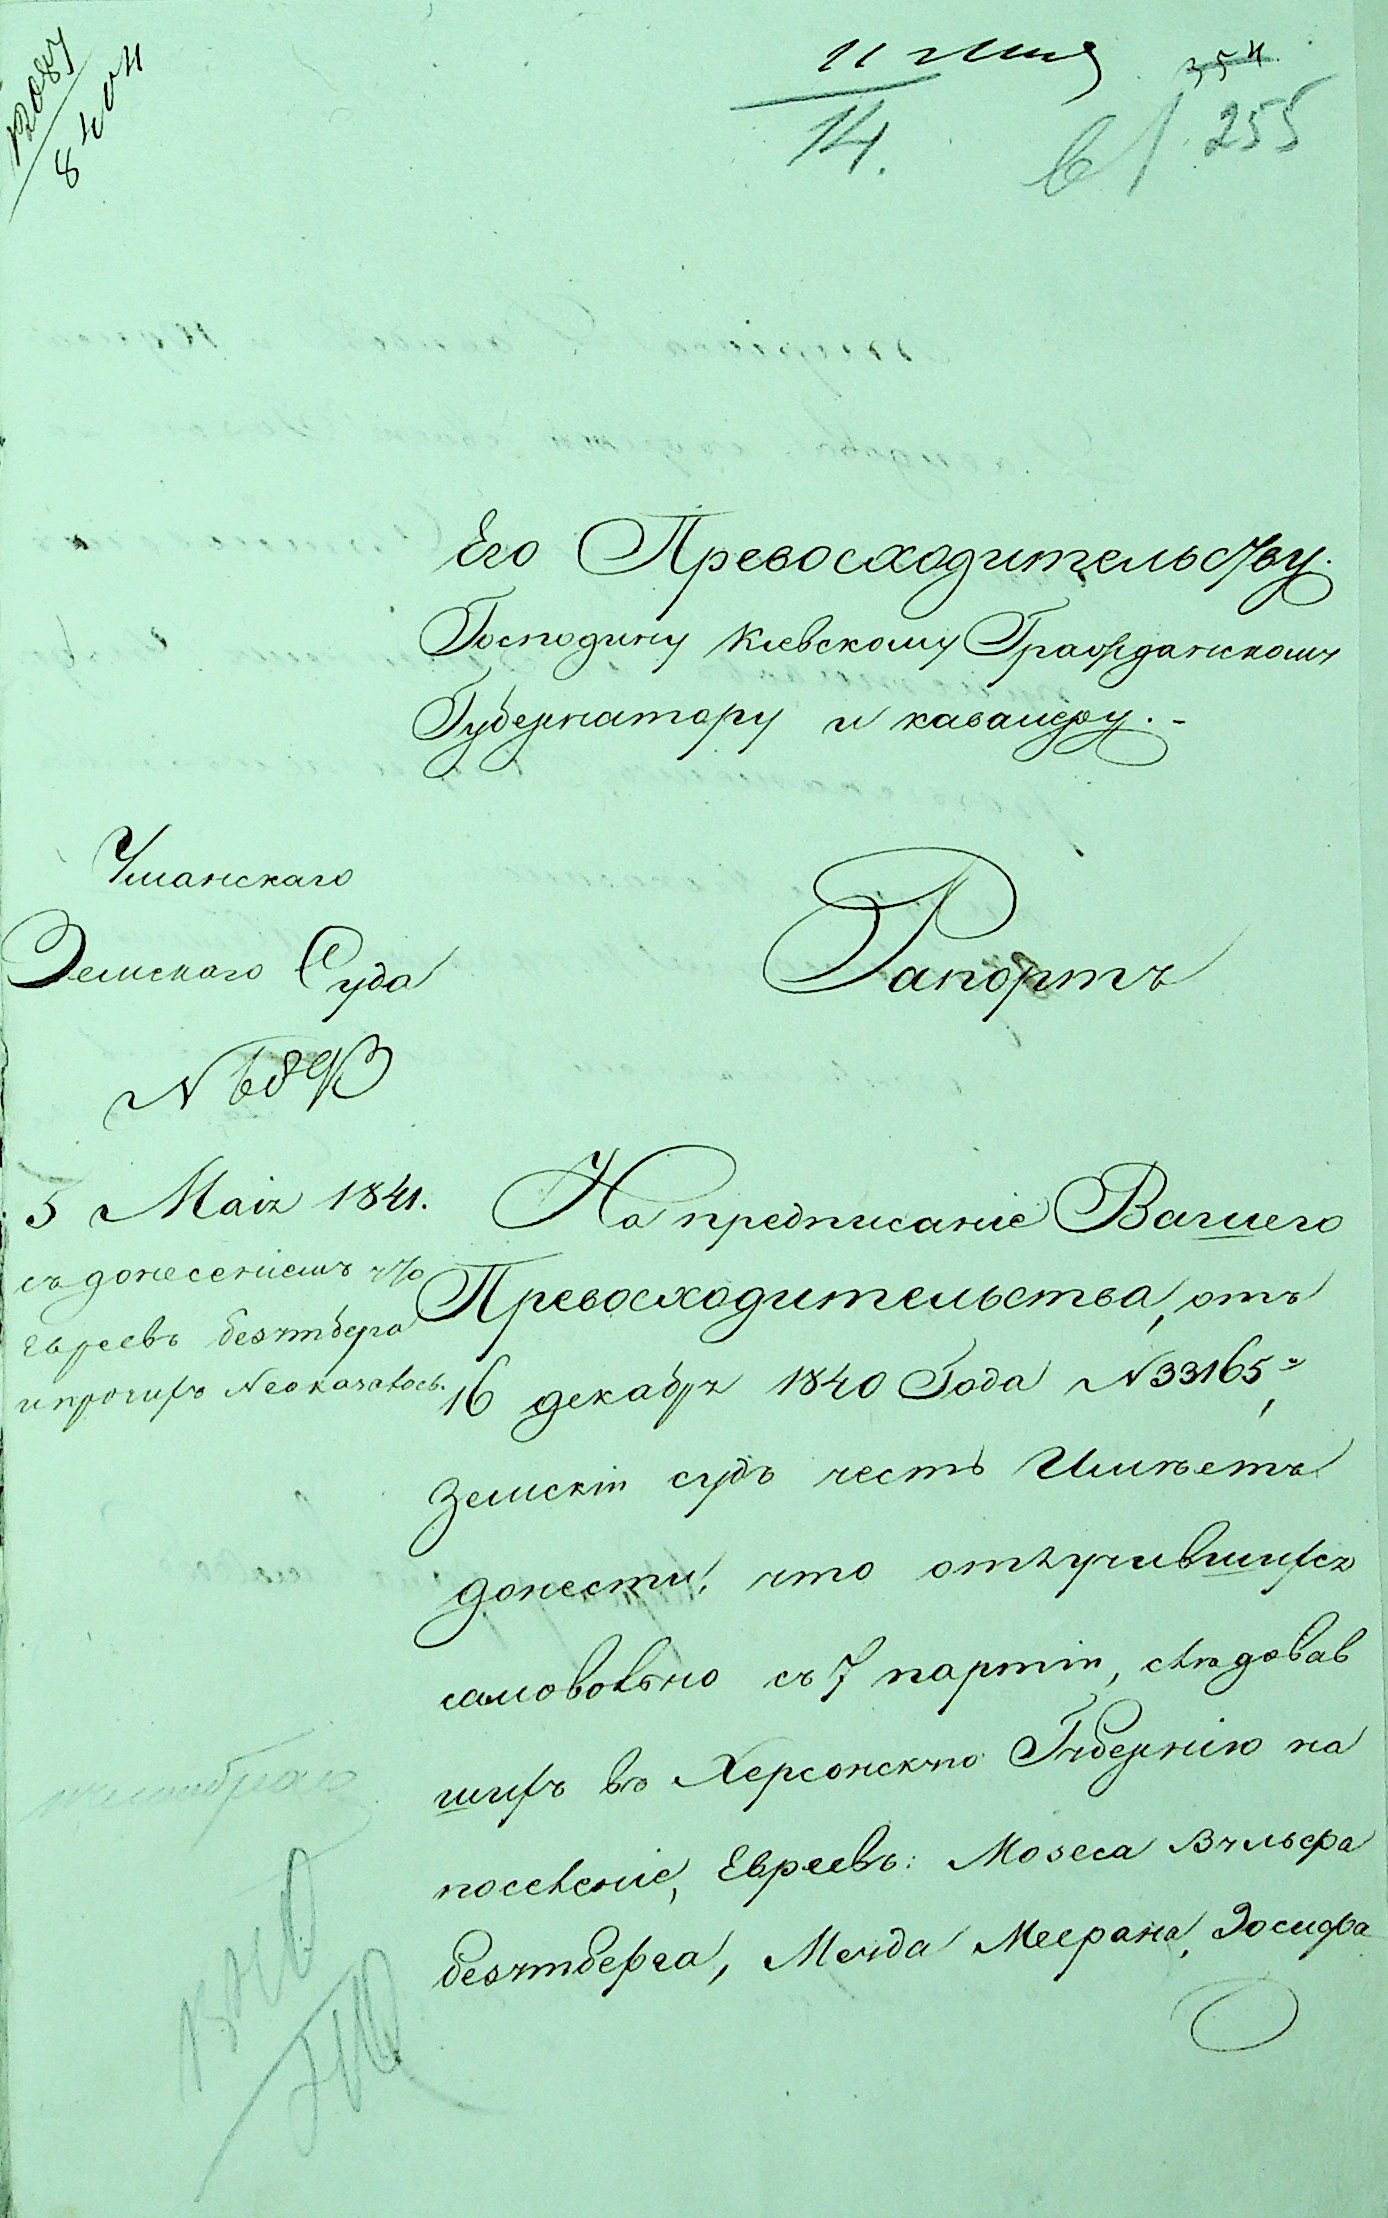 12087
8404
11 Мая
14.
354
255
Его Превосходительству.
Господину Кіевскому Гражданскому
Губернатору и кавалеру. -
Уманскаго
Земскаго Суда
Рапортъ
N 6893
5 Маія 1841.
съ донесеніемъ что
евреевъ безчтберга
и прочихъ неоказалось.
На предписаніе Вашего
Превосходительства, отъ
16 декабря 1840 Года N 33165,
Земскій судъ честь Имѣетъ
донести, что отлучившихся
самовольно съ 7 партіи, слѣдовав
шихъ въ Херсонскую Губернію на
поселеніе, Евреевъ: Мозеса Вульфа
безчтберга, Меерана, Іосифа